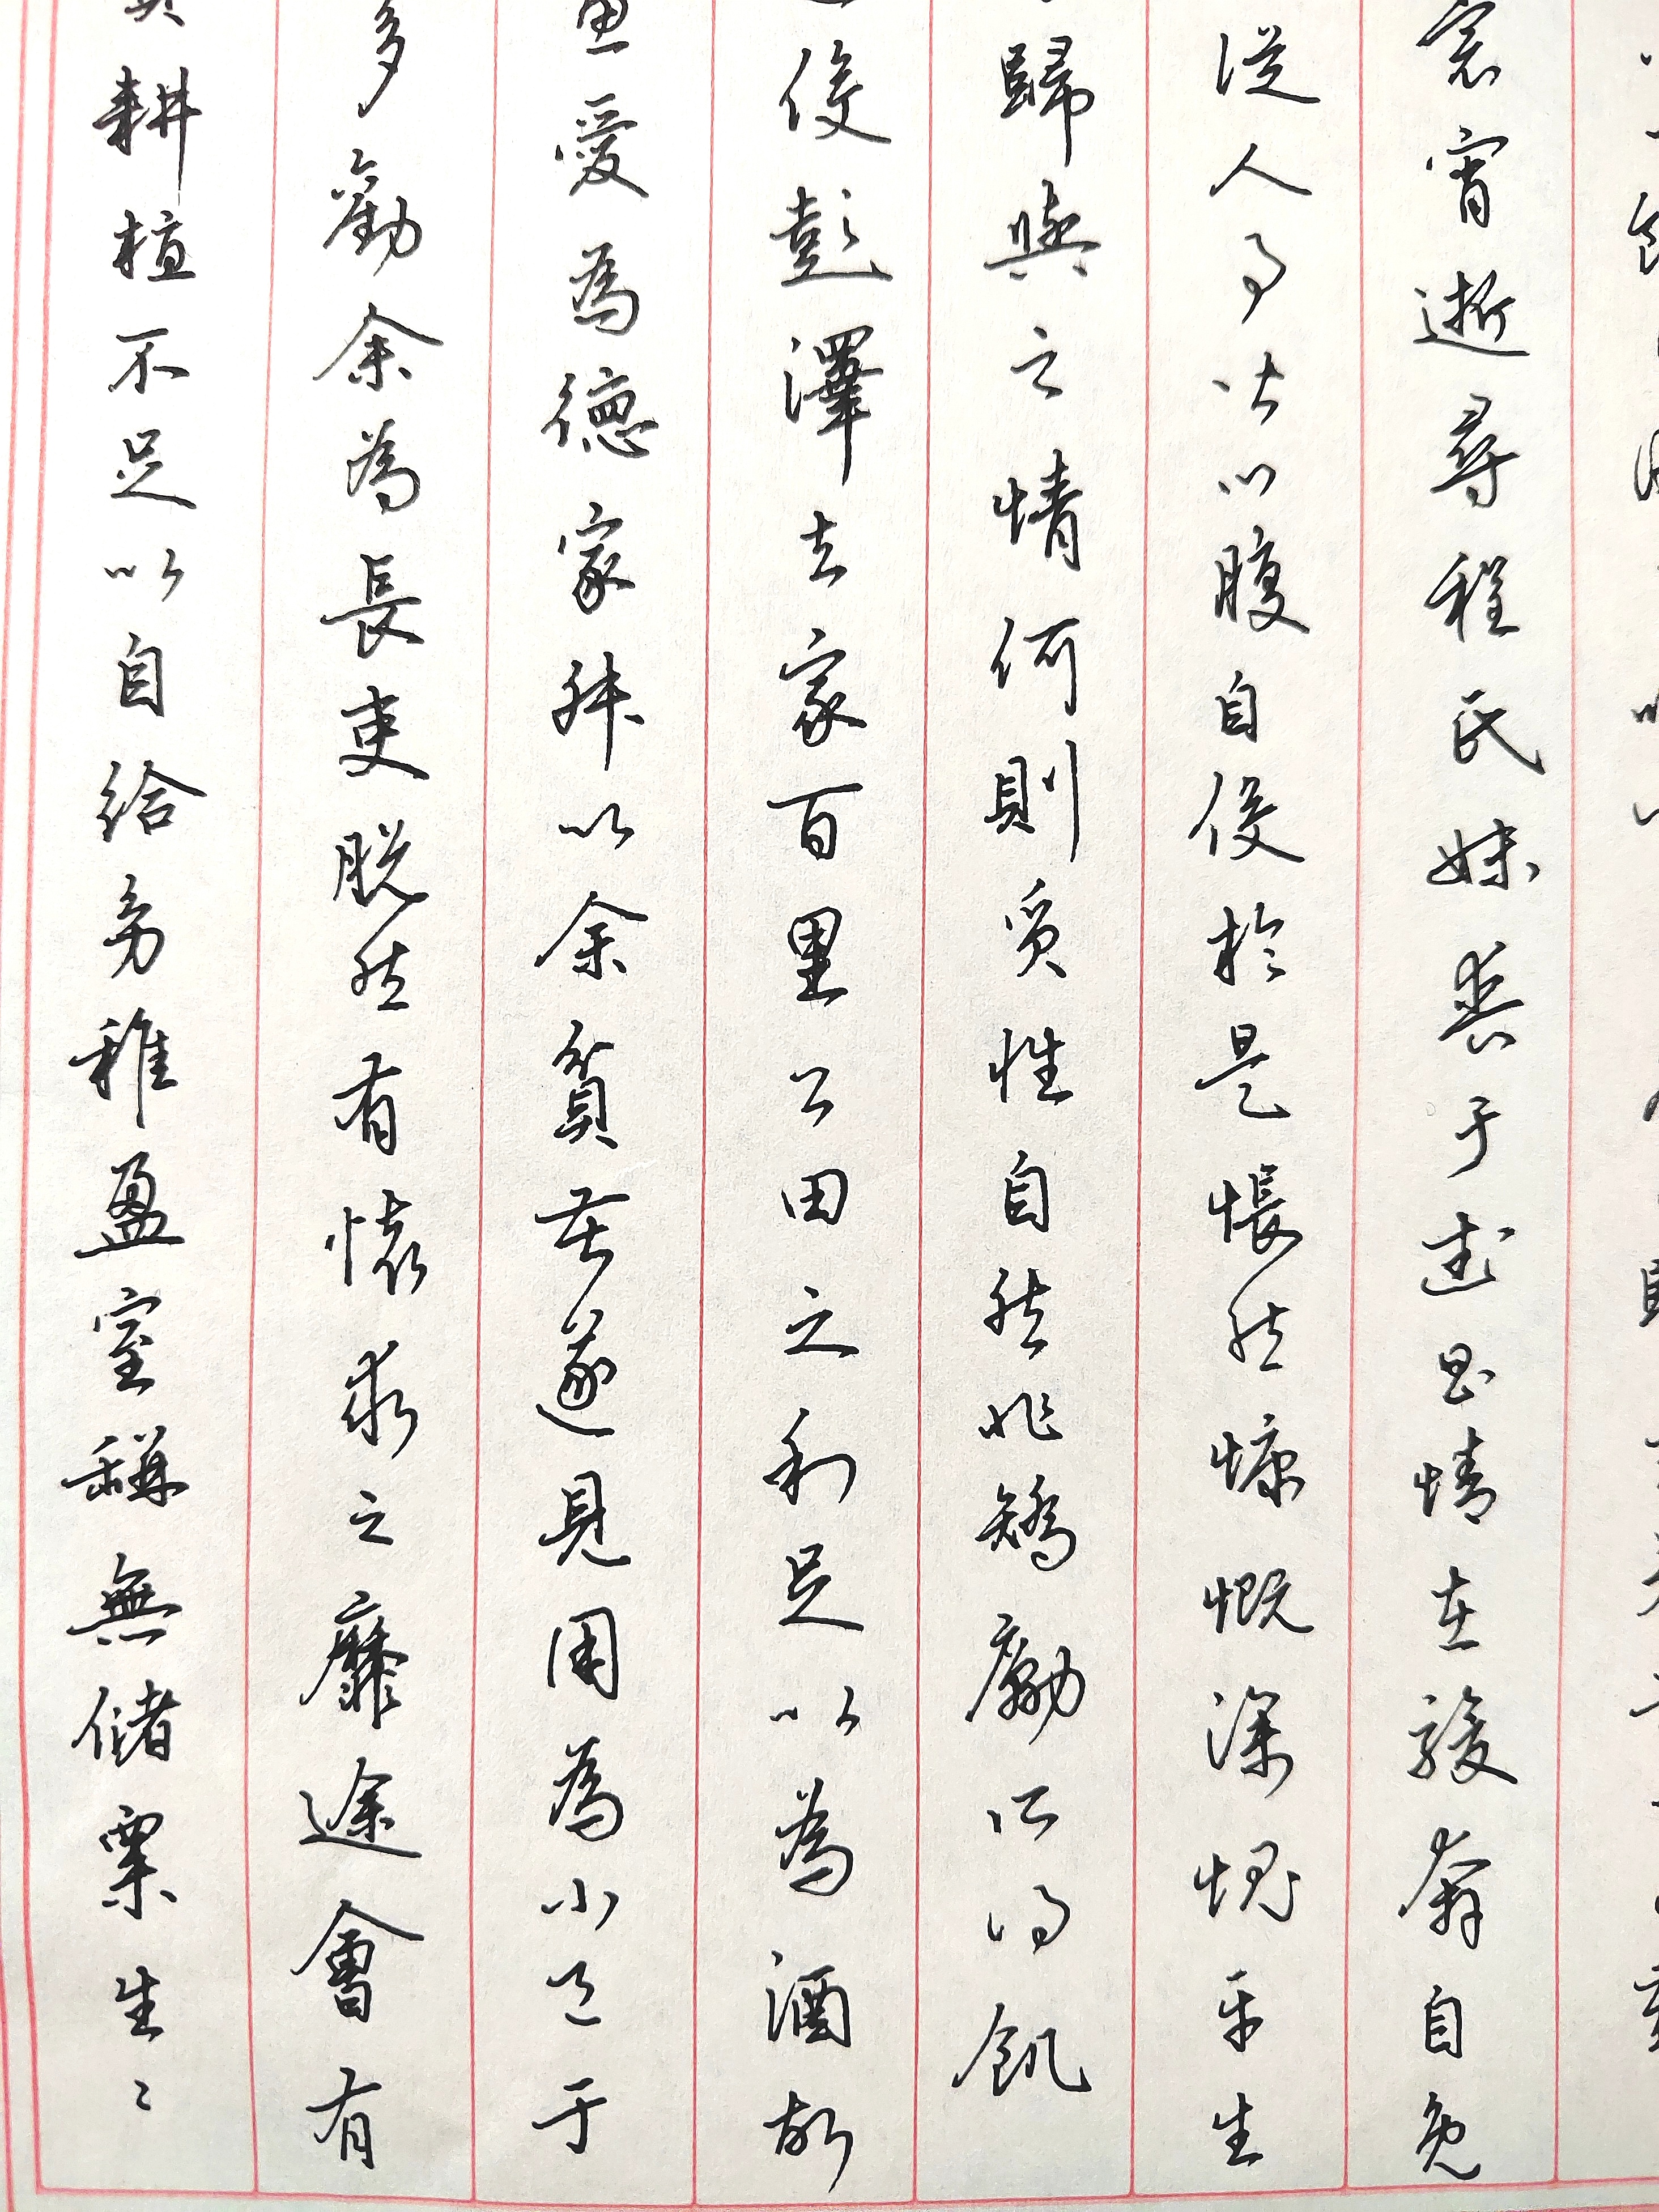 耕植不足以自給幼稚盈室缾無儲粟生〻
多勸余為長吏脫然有懷求之靡途會有
惠愛為德家叔以余貧苦遂見用為小邑于
役彭澤去家百里公田之利足以為酒故
歸與之情何則質性自然非矯勵所得飢
從人事皆口腹自役於是悵然慷慨深愧平生
裳宵逝尋程氏妹喪于武昌情在駿奔自免